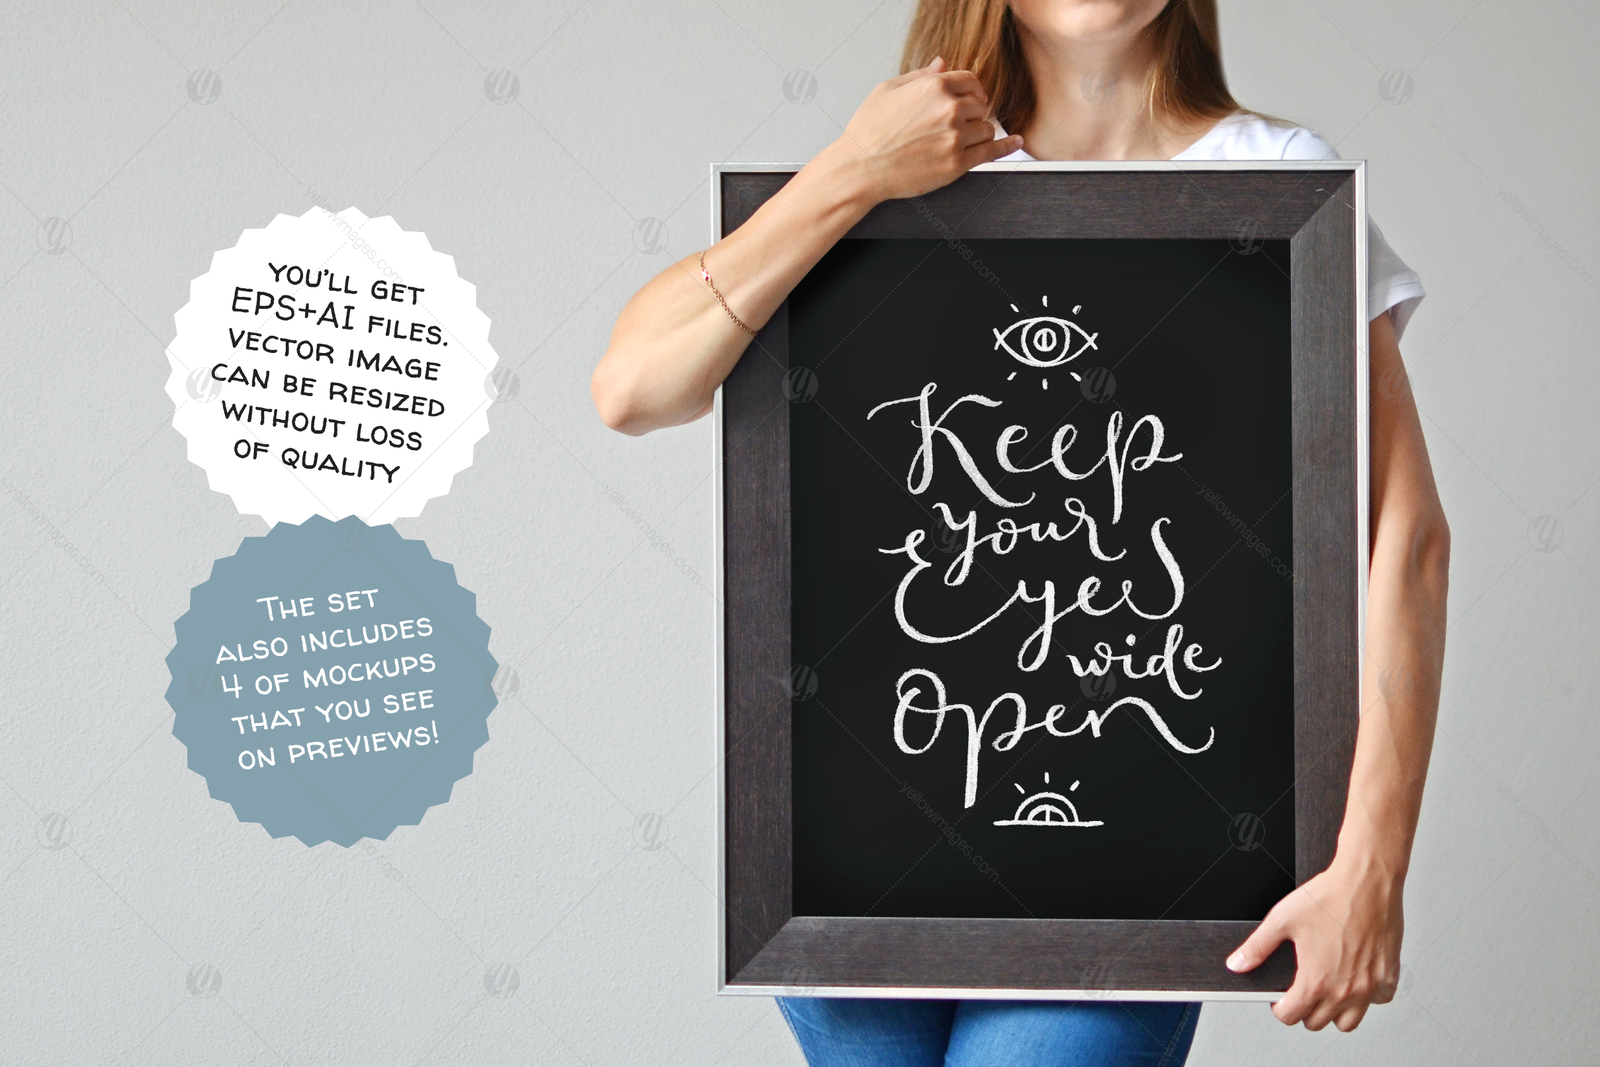 YOU'LL GET
EPS+AI FILES.
VECTOR IMAGE
CAN BE RESIZED
WITHOUT LOSS
OF QUALITY
THE SET
ALSO INCLUDES
4 OF MOCKUPS
THAT YOU SEE
ON PREVIEWS!
Keep
your
Eyes
wide
Open
yellowimages.com